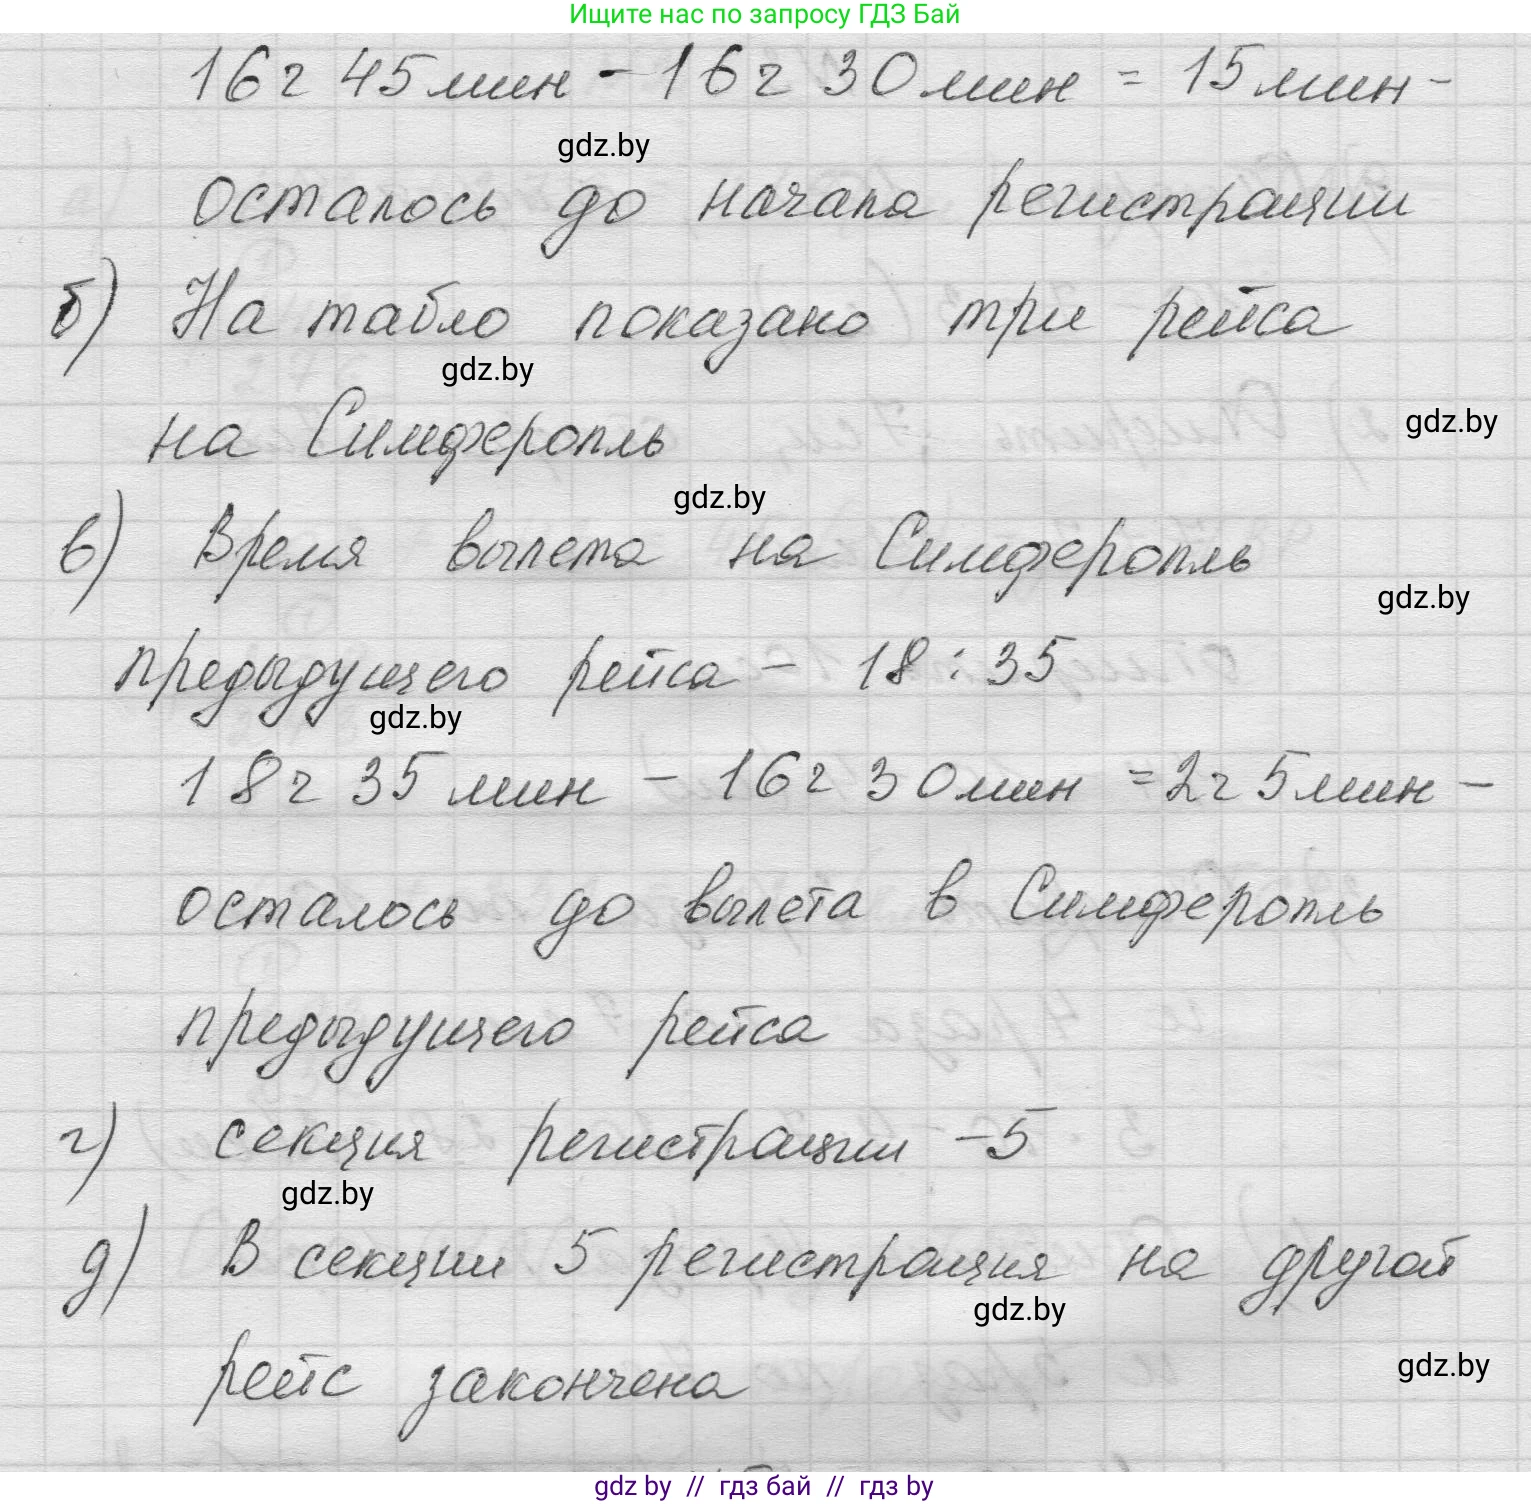 Ищите нас по запросу ГДЗ Бай
16 г 45 мин - 16 г 30 мин = 15 мин -
gdz.by
осталось до начала регистрации
б) На табло показано три рейса
gdz.by
на Симферопль
gdz.by
gdz.by
в) Время вылета на Симферопль
gdz.by
предыдущего рейса - 18:35
gdz.by
18 г 35 мин - 16 г 30 мин = 2 г 5 мин -
осталось до вылета в Симферопль
предыдущего рейса
г) секция регистрации - 5
gdz.by
д) В секции 5 регистрация на другой
gdz.by
рейс закончена
gdz.by
gdz by // гдз бай // гдз by